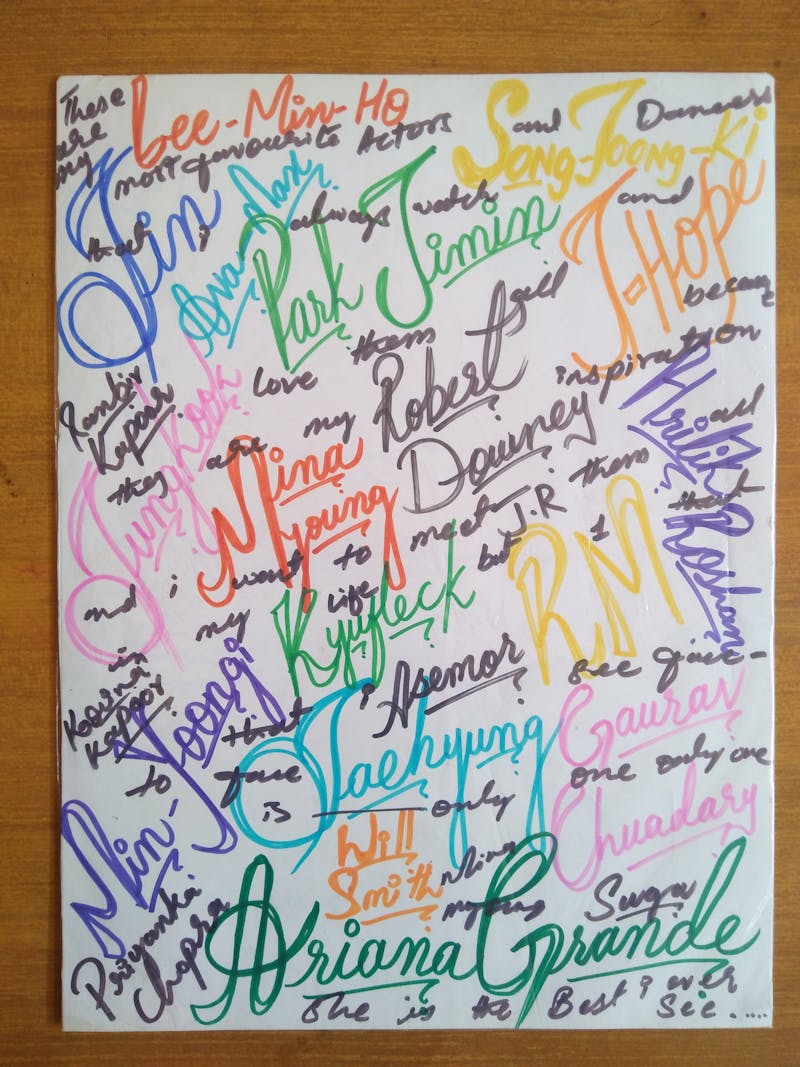 These are my
Lee-Min-Ho
most favourite Actors and Dancers
Song-Joong-Ki
Jin
Ava-Max
that i always watch and
Park Jimin
J-Hope
love them all because
Ranbir Kapoor
Jung Kook
Robert Downey J.R
they are my inspiration
Hritik Roshan
Mina Myoung
and i want to meet them all
in my life but 1 that
RM
Kyufleck
Koovna Kapoor
Min-Yoongi
that i see face-
Asemor
Taehyung
Gaurav Chuadary
to face is only one only one
Will Smith
Ming myoung Suga
Priyanka Chopra
Ariana Grande
She is the Best i ever see.....